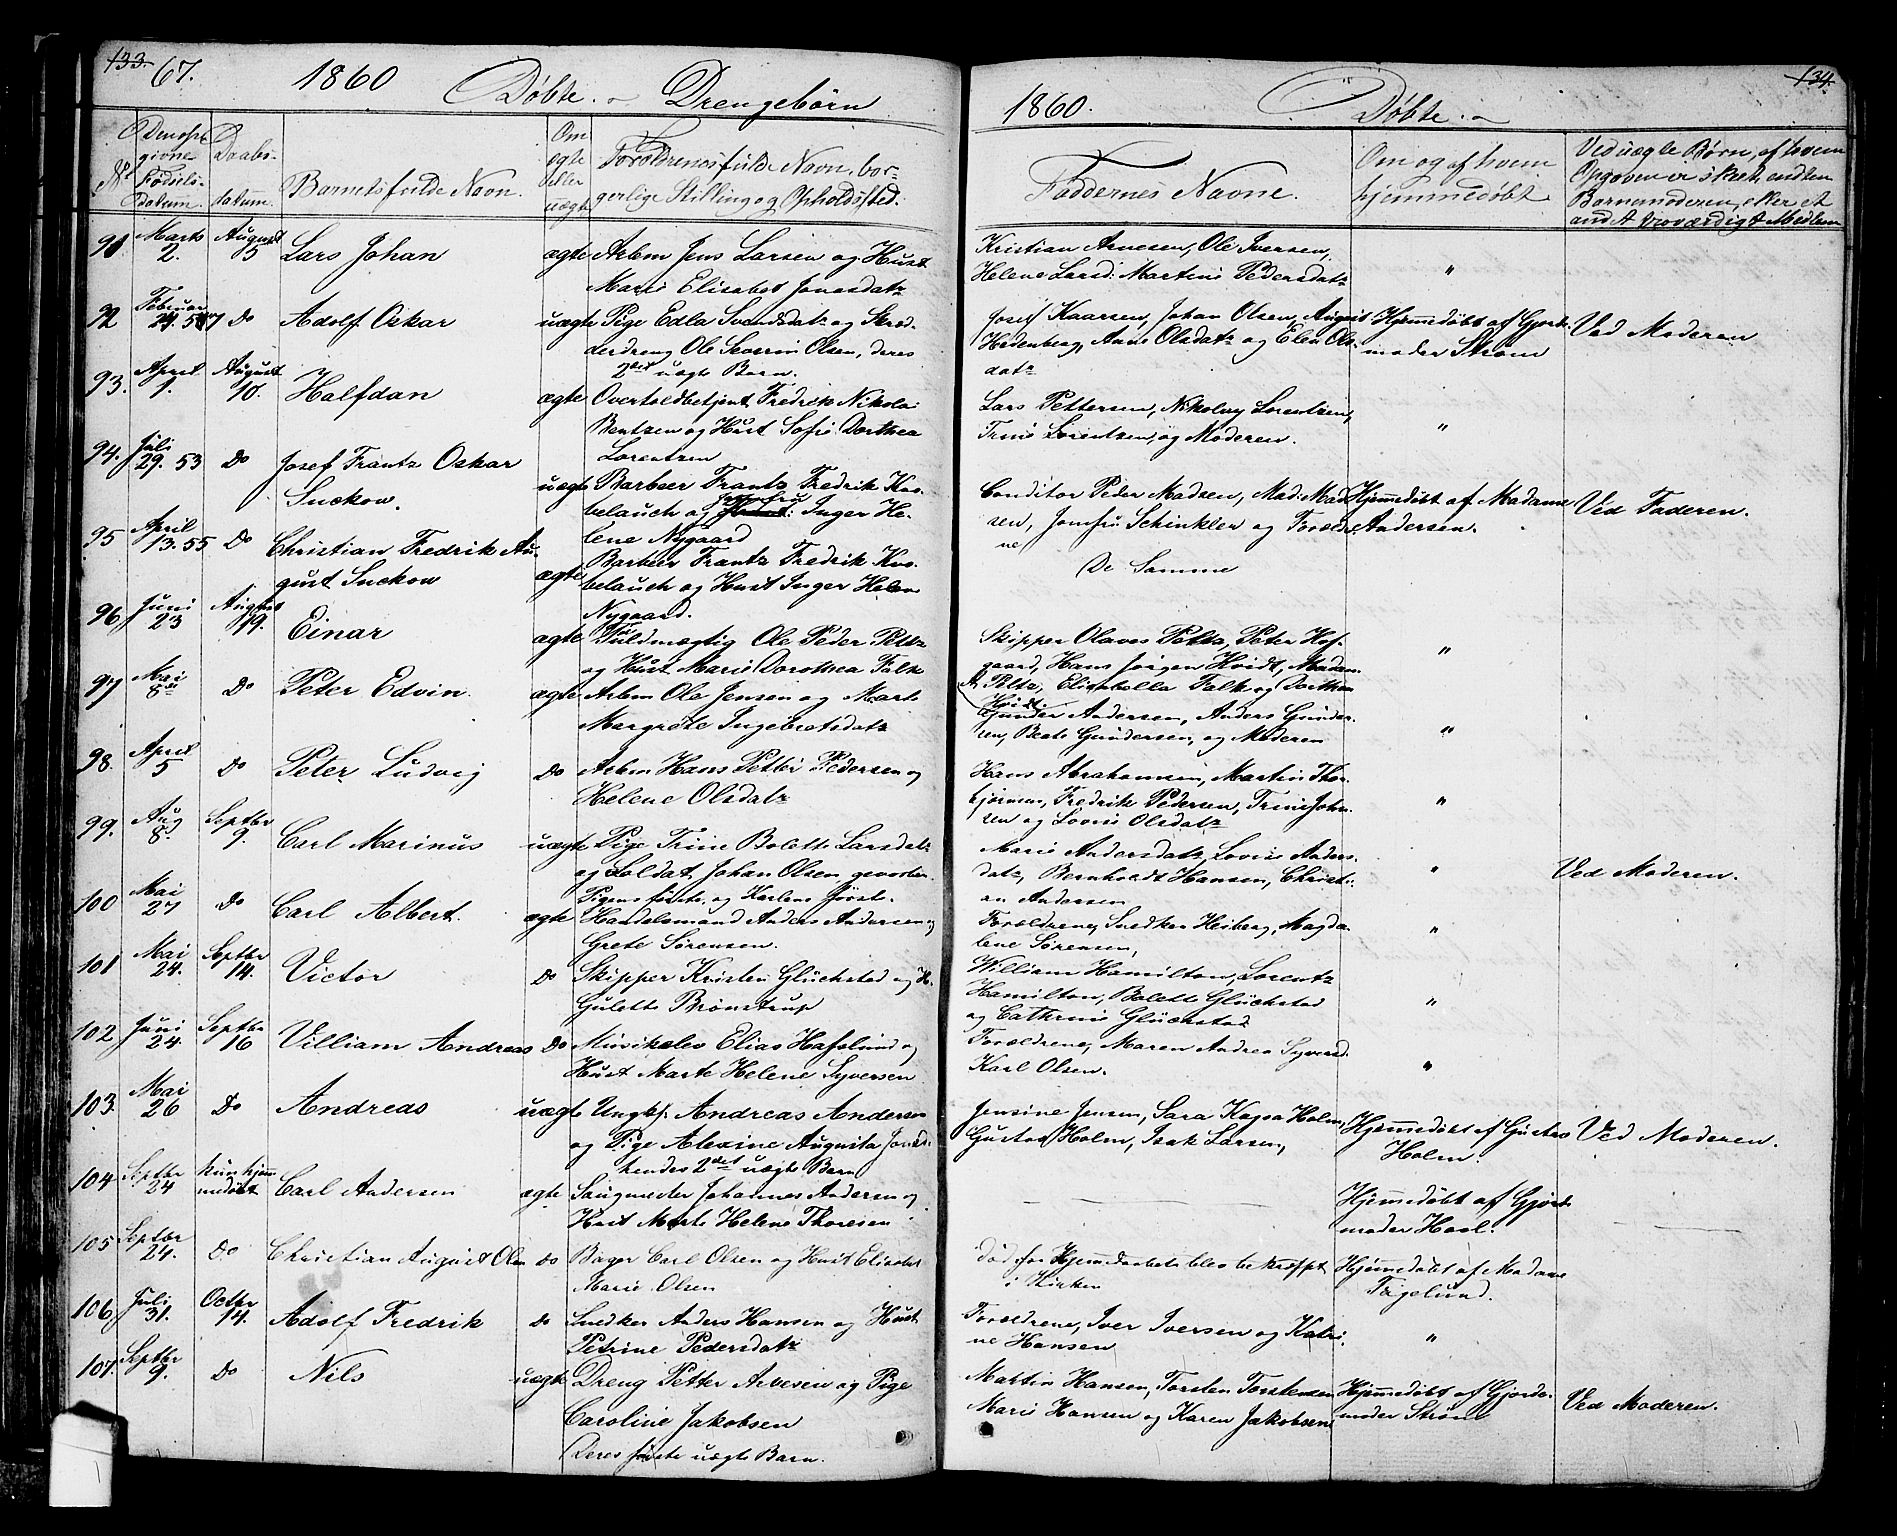 133. 67. 1860 Döbte. Drengebörn
№ Den opgivne Födselsdatum. Daabsdatum. Barnets fulde Navn. Om ægte eller uægte Forældrenes fulde Navn, borgerlige Stilling og Opholdssted.
91 Marts 2. August 5 Lars Johan ægte Arbm Jens Larsen og Hust
Marie Elisabet Jonasdatr
92 Februar 24. Do Adolf Oskar uægte Pige Edla Svendsdatr og Skræd-
derdreng Ole Severin Olsen, deres
2det uægte Barn.
93. April 1. August 10. Halfdan ægte Overtoldbetjent Fredrik Nikolai
Bentzen og Hust Sofie Dorthea
Lorentzen
94. Juli 29. 53 Do Josef Frantz Oskar
Suckow. uægte Barbeer Frantz Fredrik Ko-
belauch og Jomfru Inger He-
lene Nygaard
95 April 13. 55 Do Christian Fredrik Au-
gust Suckow ægte Barbeer Frantz Fredrik Ko-
belauch og Hust Inger Helene
Nygaard.
96 Juni 23 August 19. Einar ægte Fuldmægtig Ole Peder Peltz
og Hust Marie Dorothea Falk
97 Mai 8de Do Peter Edvin. ægte Arbm Ole Jensen og Marte
Margrete Ingebretsdatr
98. April 5 Do Peter Ludvig Do Arbm Hans Petter Pedersen og
Helene Olsdatr
99. Aug 8. Septbr 9. Carl Marinus uægte Pige Trine Bolette Larsdatr
og Soldat Johan Olsen, gevorben
Pigens förste og Karlens förste.
100 Mai 27 Do Carl Albert. ægte Handelsmand Anders Andersen og
Grete Sörensen.
101 Mai 24. Septbr 14. Victor Do Skipper Kristen Glückstad og H.
Gulette Brönstrup
102 Juni 24. Septbr 16 Villiam Andreas Do Musikelev Elias Hafslund og
Hust Marte Helene Syversen
103. Mai 26 Do Andreas uægte Ungk. Andreas Andersen
og Pige Alexine Augusta Jonasd.
hendes 2det uægte Barn
104 Septbr 24 kun hjemmedöbt Carl Andersen ægte Saugmester Johannes Andersen og
Hust Marte Helene Thoresen
105 Septbr 24. Do Christian August Olsen Do Bager Carl Olsen og Hust Elisabet
Marie Olsen
106 Juli 31. Octbr 14. Adolf Fredrik Do Snedker Anders Hansen og Hust
Petrine Pedersdatr
107. Septbr 9. Do Nils uægte Dreng Petter Arvesen og Pige
Caroline Jakobsen
Deres förste uægte Barn.
1860. Döbte. 134.
Faddernes Navne. Om og af hvem hjemmedöbt Ved uægte Börn, af hvem Opgaven er skeet, enten Barnemoderen, eller et andet troværdigt Medlem
Kristian Arnesen, Ole Iversen,
Helene Larsd. Martine Pedersdatr "
Josef Kaarsen, Johan Olsen, August Hjemmedöbt af Gjorde- Ved Moderen
Hedenberg, Anne Olsdatr og Elen Ols- moder Ström
datr
Lars Pettersen, Nikolay Lorentzen,
Trine Lorentzen, og Moderen. "
Conditor Peder Madsen, Mad. Mad- Hjemmedöbt af Madame Ved Faderen.
sen, Jomfru Schinkler og Forældre- Andersen.
ne
De Samme
Skipper Olaves Peltz, Peter Hof-
gaard, Hans Jörgen Hvidt, Madam "
A Peltz, Elisabella Falk og Dorthea
Hvidt.
Gunder Andersen, Anders Gunder-
sen, Beate Gundersen, og Moderen "
Hans Abrahamsen, Martin Thor-
björnsen, Fredrik Pedersen, Trine John- "
sen og Lovise Olsdatr
Marie Andersdatr, Lovise Anders-
datr, Bernholdt Hansen, Christi- " Ved Moderen.
an Andersen
Forældrene, Snedker Heiberg, Magda-
lene Sörensen, "
William Hamilton, Lorentz
Hamilton, Bolette Glückstad "
og Cathrine Glückstad
Forældrene, Maren Andrea Syversd.
Karl Olsen. "
Jensine Jensen, Sara Kajsa Holm, Hjemmedöbt af Gustav Ved Moderen.
Gustav Holm, Isak Larsen, Holm.
Hjemmedöbt af Gjorde-
moder Hool.
död for Hjemmedaabete blev bekræftet Hjemmedöbt af Madame
i Kirken Fagelund.
Forældrene, Iver Iversen og Katri-
ne Hansen "
Martin Hansen, Torsten Torstensen, Hjemmedöbt af Gjorde- Ved Moderen.
Marie Hansen og Karen Jakobsen moder Ström